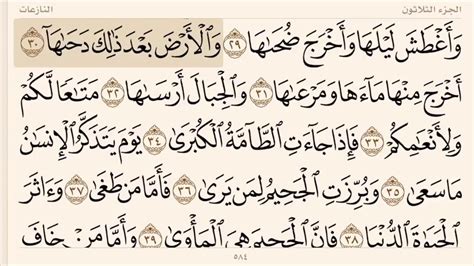 الجزء الثلاثون
النازعات
وَأَغْطَشَ لَيْلَهَا وَأَخْرَجَ ضُحَىٰهَا ٢٩ وَٱلْأَرْضَ بَعْدَ ذَٰلِكَ دَحَىٰهَآ ٣٠
أَخْرَجَ مِنْهَا مَآءَهَا وَمَرْعَىٰهَا ٣١ وَٱلْجِبَالَ أَرْسَىٰهَا ٣٢ مَتَٰعًا لَّكُمْ
وَلِأَنْعَٰمِكُمْ ٣٣ فَإِذَا جَآءَتِ ٱلطَّآمَّةُ ٱلْكُبْرَىٰ ٣٤ يَوْمَ يَتَذَكَّرُ ٱلْإِنسَٰنُ
مَا سَعَىٰ ٣٥ وَبُرِّزَتِ ٱلْجَحِيمُ لِمَن يَرَىٰ ٣٦ فَأَمَّا مَن طَغَىٰ ٣٧ وَءَاثَرَ
ٱلْحَيَوٰةَ ٱلدُّنْيَا ٣٨ فَإِنَّ ٱلْجَحِيمَ هِىَ ٱلْمَأْوَىٰ ٣٩ وَأَمَّا مَنْ خَافَ
٥٨٤